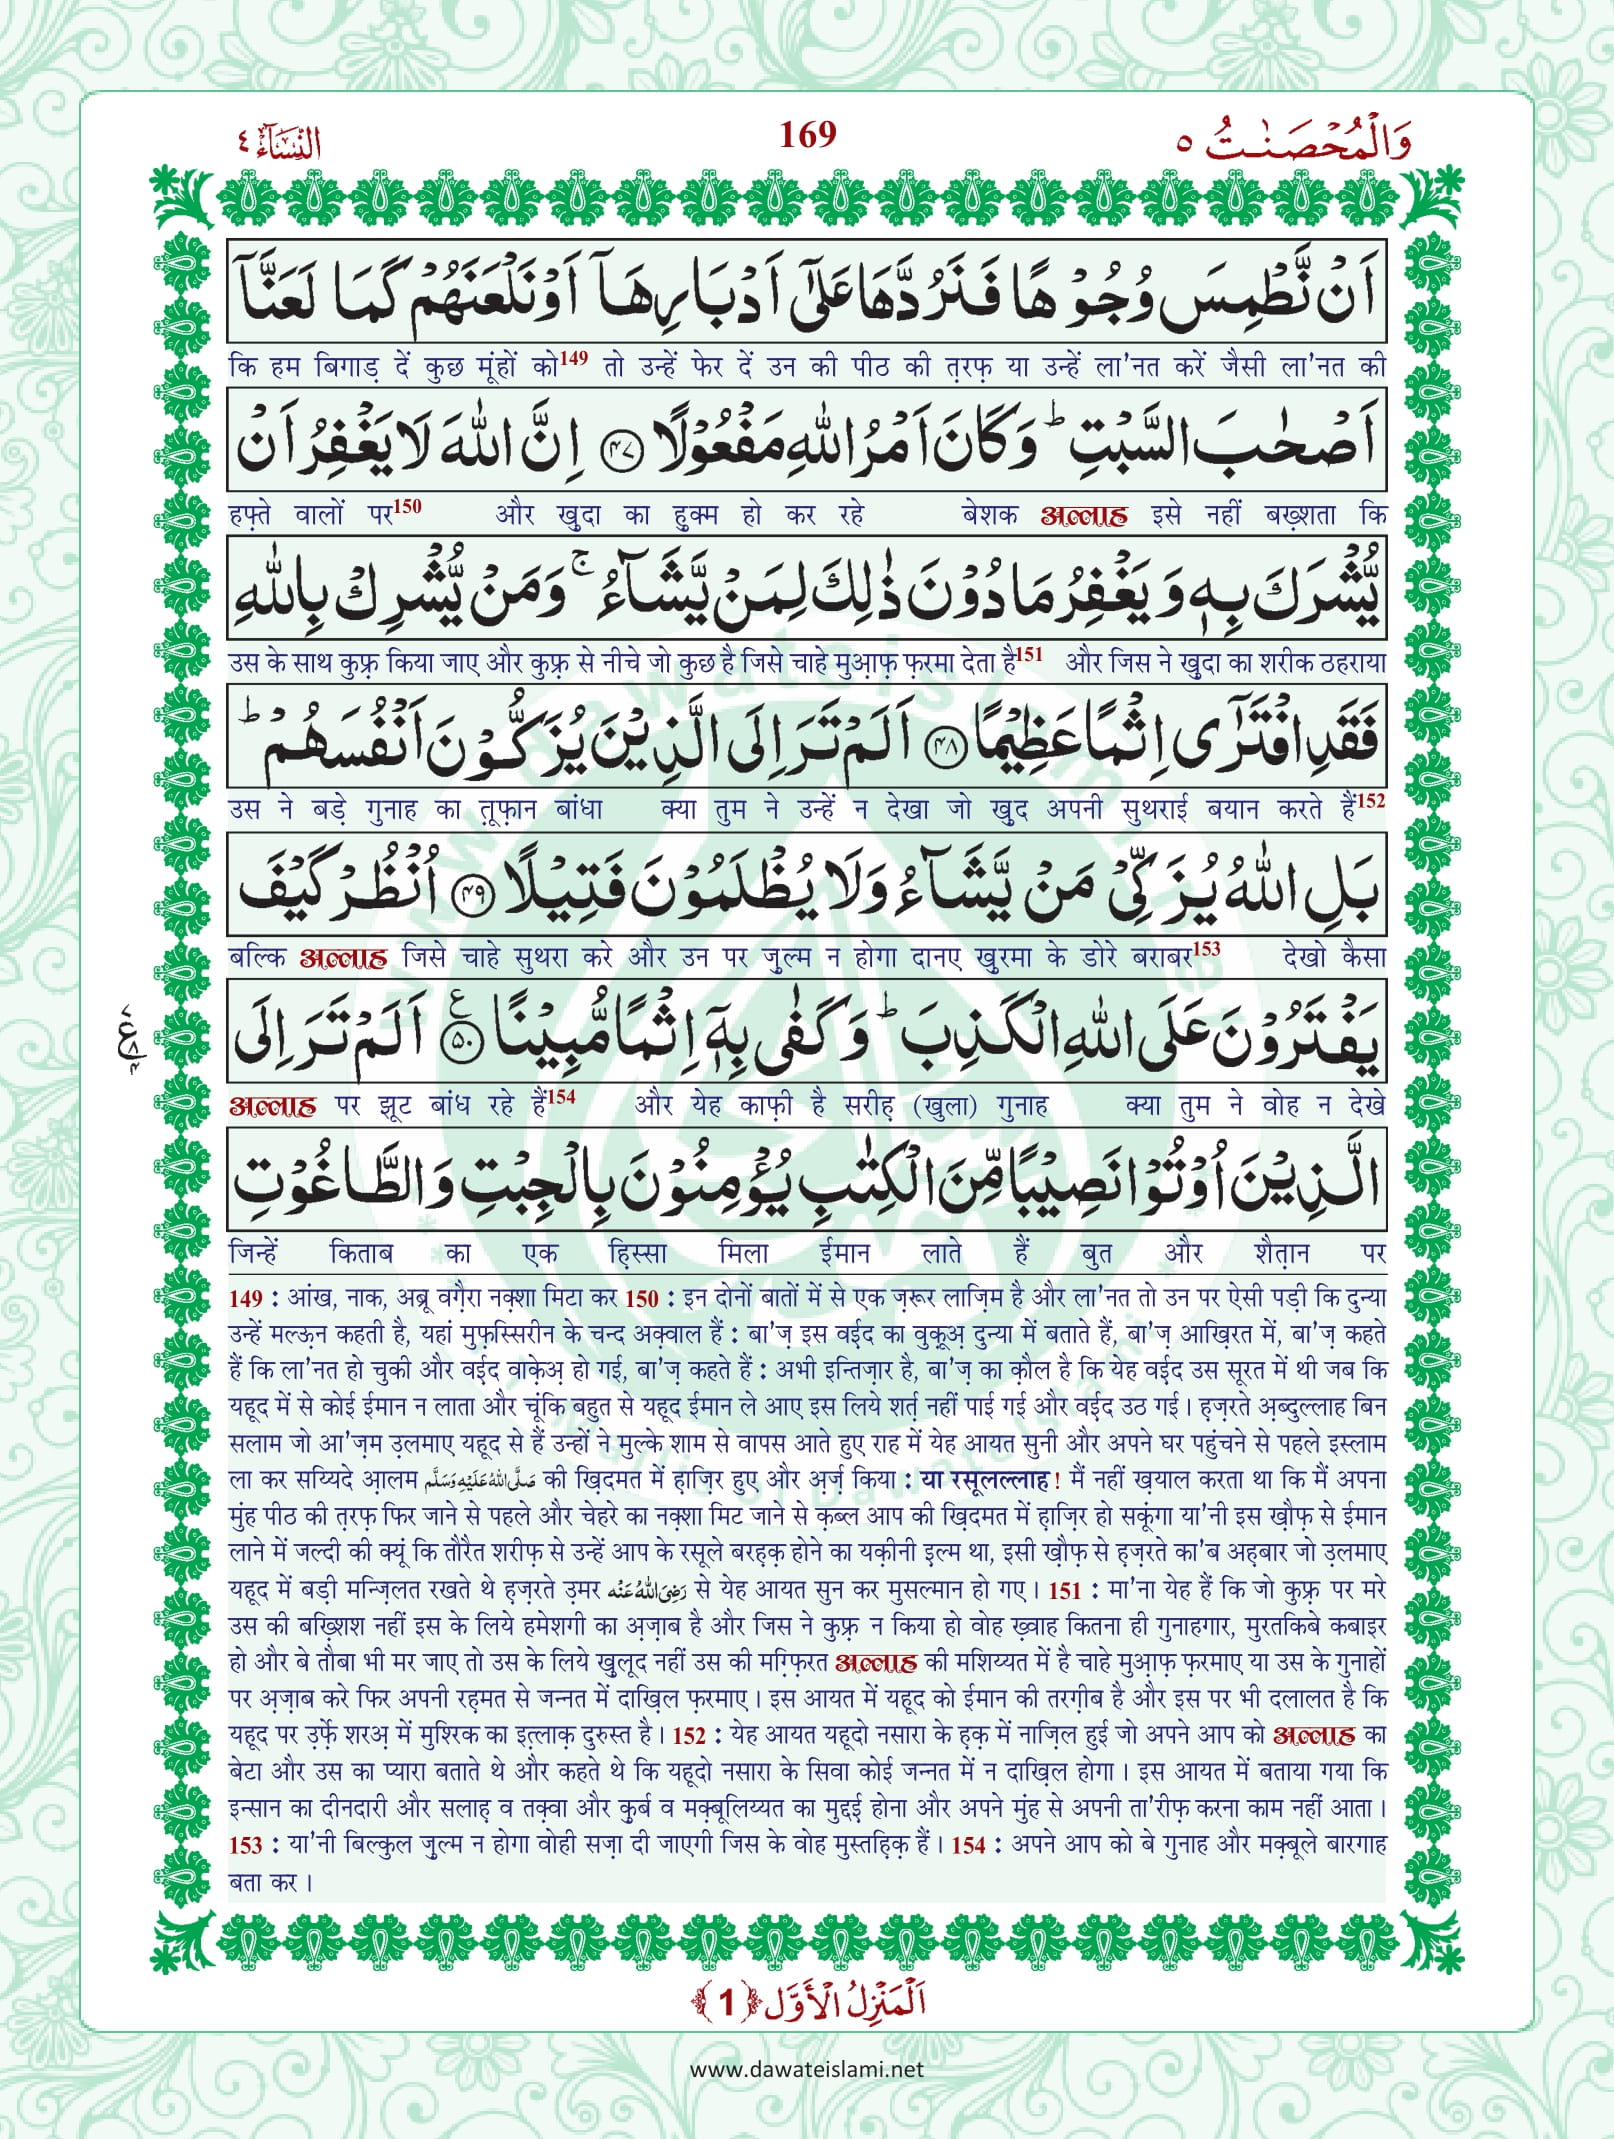 وَالْمُحْصَنٰتُ ٥ 169 النِّسَآءُ ٤
اَنْ نَّطْمِسَ وُجُوْهًا فَنَرُدَّهَا عَلٰۤى اَدْبَارِهَاۤ اَوْ نَلْعَنَهُمْ كَمَا لَعَنَّاۤ
कि हम बिगाड़ दें कुछ मूंहों को149 तो उन्हें फेर दें उन की पीठ की त़रफ़ या उन्हें ला'नत करें जैसी ला'नत की
اَصْحٰبَ السَّبْتِ ؕ وَ كَانَ اَمْرُ اللّٰهِ مَفْعُوْلًا ﴿۴۷﴾ اِنَّ اللّٰهَ لَا یَغْفِرُ اَنْ
हफ़्ते वालों पर150 और ख़ुदा का हुक्म हो कर रहे बेशक अल्लाह इसे नहीं बख़्शता कि
یُّشْرَكَ بِهٖ وَ یَغْفِرُ مَا دُوْنَ ذٰلِكَ لِمَنْ یَّشَآءُ ۚ وَ مَنْ یُّشْرِكْ بِاللّٰهِ
उस के साथ कुफ़्र किया जाए और कुफ़्र से नीचे जो कुछ है जिसे चाहे मुआ़फ़ फ़रमा देता है151 और जिस ने ख़ुदा का शरीक ठहराया
فَقَدِ افْتَرٰۤى اِثْمًا عَظِیْمًا ﴿۴۸﴾ اَلَمْ تَرَ اِلَى الَّذِیْنَ یُزَكُّوْنَ اَنْفُسَهُمْ ؕ
उस ने बड़े गुनाह का तूफ़ान बांधा क्या तुम ने उन्हें न देखा जो ख़ुद अपनी सुथराई बयान करते हैं152
بَلِ اللّٰهُ یُزَكِّیْ مَنْ یَّشَآءُ وَ لَا یُظْلَمُوْنَ فَتِیْلًا ﴿۴۹﴾ اُنْظُرْ كَیْفَ
बल्कि अल्लाह जिसे चाहे सुथरा करे और उन पर ज़ुल्म न होगा दानए ख़ुरमा के डोरे बराबर153 देखो कैसा
یَفْتَرُوْنَ عَلَى اللّٰهِ الْكَذِبَ ؕ وَ كَفٰى بِهٖۤ اِثْمًا مُّبِیْنًا ﴿۵۰﴾ ع اَلَمْ تَرَ اِلَى
अल्लाह पर झूट बांध रहे हैं154 और येह काफ़ी है सरीह़ (खुला) गुनाह क्या तुम ने वोह न देखे
الَّذِیْنَ اُوْتُوْا نَصِیْبًا مِّنَ الْكِتٰبِ یُؤْمِنُوْنَ بِالْجِبْتِ وَ الطَّاغُوْتِ
जिन्हें किताब का एक हि़स्सा मिला ईमान लाते हैं बुत और शैत़ान पर
149 : आंख, नाक, अब्रू वग़ैरा नक़्शा मिटा कर 150 : इन दोनों बातों में से एक ज़रूर लाज़िम है और ला'नत तो उन पर ऐसी पड़ी कि दुन्या
उन्हें मल्ऊ़न कहती है, यहां मुफ़स्सिरीन के चन्द अक़्वाल हैं : बा'ज़ इस वई़द का वुक़ूअ़ दुन्या में बताते हैं, बा'ज़ आख़िरत में, बा'ज़ कहते
हैं कि ला'नत हो चुकी और वई़द वाक़ेअ़ हो गई, बा'ज़ कहते हैं : अभी इन्तिज़ार है, बा'ज़ का क़ौल है कि येह वई़द उस सूरत में थी जब कि
यहूद में से कोई ईमान न लाता और चूंकि बहुत से यहूद ईमान ले आए इस लिये शर्त़ नहीं पाई गई और वई़द उठ गई । ह़ज़रते अ़ब्दुल्लाह बिन
सलाम जो आ'ज़म उ़लमाए यहूद से हैं उन्हों ने मुल्के शाम से वापस आते हुए राह में येह आयत सुनी और अपने घर पहुंचने से पहले इस्लाम
ला कर सय्यिदे आ़लम صَلَّى اللّٰهُ عَلَيْهِ وَسَلَّم की ख़िदमत में ह़ाज़िर हुए और अ़र्ज़ किया : या रसूलल्लाह ! मैं नहीं ख़याल करता था कि मैं अपना
मुंह पीठ की त़रफ़ फिर जाने से पहले और चेहरे का नक़्शा मिट जाने से क़ब्ल आप की ख़िदमत में ह़ाज़िर हो सकूंगा या'नी इस ख़ौफ़ से ईमान
लाने में जल्दी की क्यूं कि तौरैत शरीफ़ से उन्हें आप के रसूले बरह़क़ होने का यक़ीनी इ़ल्म था, इसी ख़ौफ़ से ह़ज़रते का'ब अह़बार जो उ़लमाए
यहूद में बड़ी मन्ज़िलत रखते थे ह़ज़रते उ़मर رَضِىَ اللّٰهُ عَنْه से येह आयत सुन कर मुसल्मान हो गए । 151 : मा'ना येह हैं कि जो कुफ़्र पर मरे
उस की बख़्शिश नहीं इस के लिये हमेशगी का अ़ज़ाब है और जिस ने कुफ़्र न किया हो वोह ख़्वाह कितना ही गुनाहगार, मुरतकिबे कबाइर
हो और बे तौबा भी मर जाए तो उस के लिये ख़ुलूद नहीं उस की मग़्फ़िरत अल्लाह की मशिय्यत में है चाहे मुआ़फ़ फ़रमाए या उस के गुनाहों
पर अ़ज़ाब करे फिर अपनी रह़मत से जन्नत में दाख़िल फ़रमाए । इस आयत में यहूद को ईमान की तरग़ीब है और इस पर भी दलालत है कि
यहूद पर उ़र्फ़े शरअ़ में मुश्रिक का इत़्लाक़ दुरुस्त है । 152 : येह आयत यहूदो नसारा के ह़क़ में नाज़िल हुई जो अपने आप को अल्लाह का
बेटा और उस का प्यारा बताते थे और कहते थे कि यहूदो नसारा के सिवा कोई जन्नत में न दाख़िल होगा । इस आयत में बताया गया कि
इन्सान का दीनदारी और सलाह़ व तक़्वा और क़ुर्ब व मक़्बूलिय्यत का मुद्दई़ होना और अपने मुंह से अपनी ता'रीफ़ करना काम नहीं आता ।
153 : या'नी बिल्कुल ज़ुल्म न होगा वोही सज़ा दी जाएगी जिस के वोह मुस्तह़िक़ हैं । 154 : अपने आप को बे गुनाह और मक़्बूले बारगाह
बता कर ।
اَلْمَنْزِلُ الْاَوَّل ﴿1﴾
www.dawateislami.net